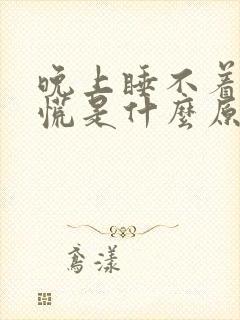 晚上睡不着
慌是什麼原
鳶漾